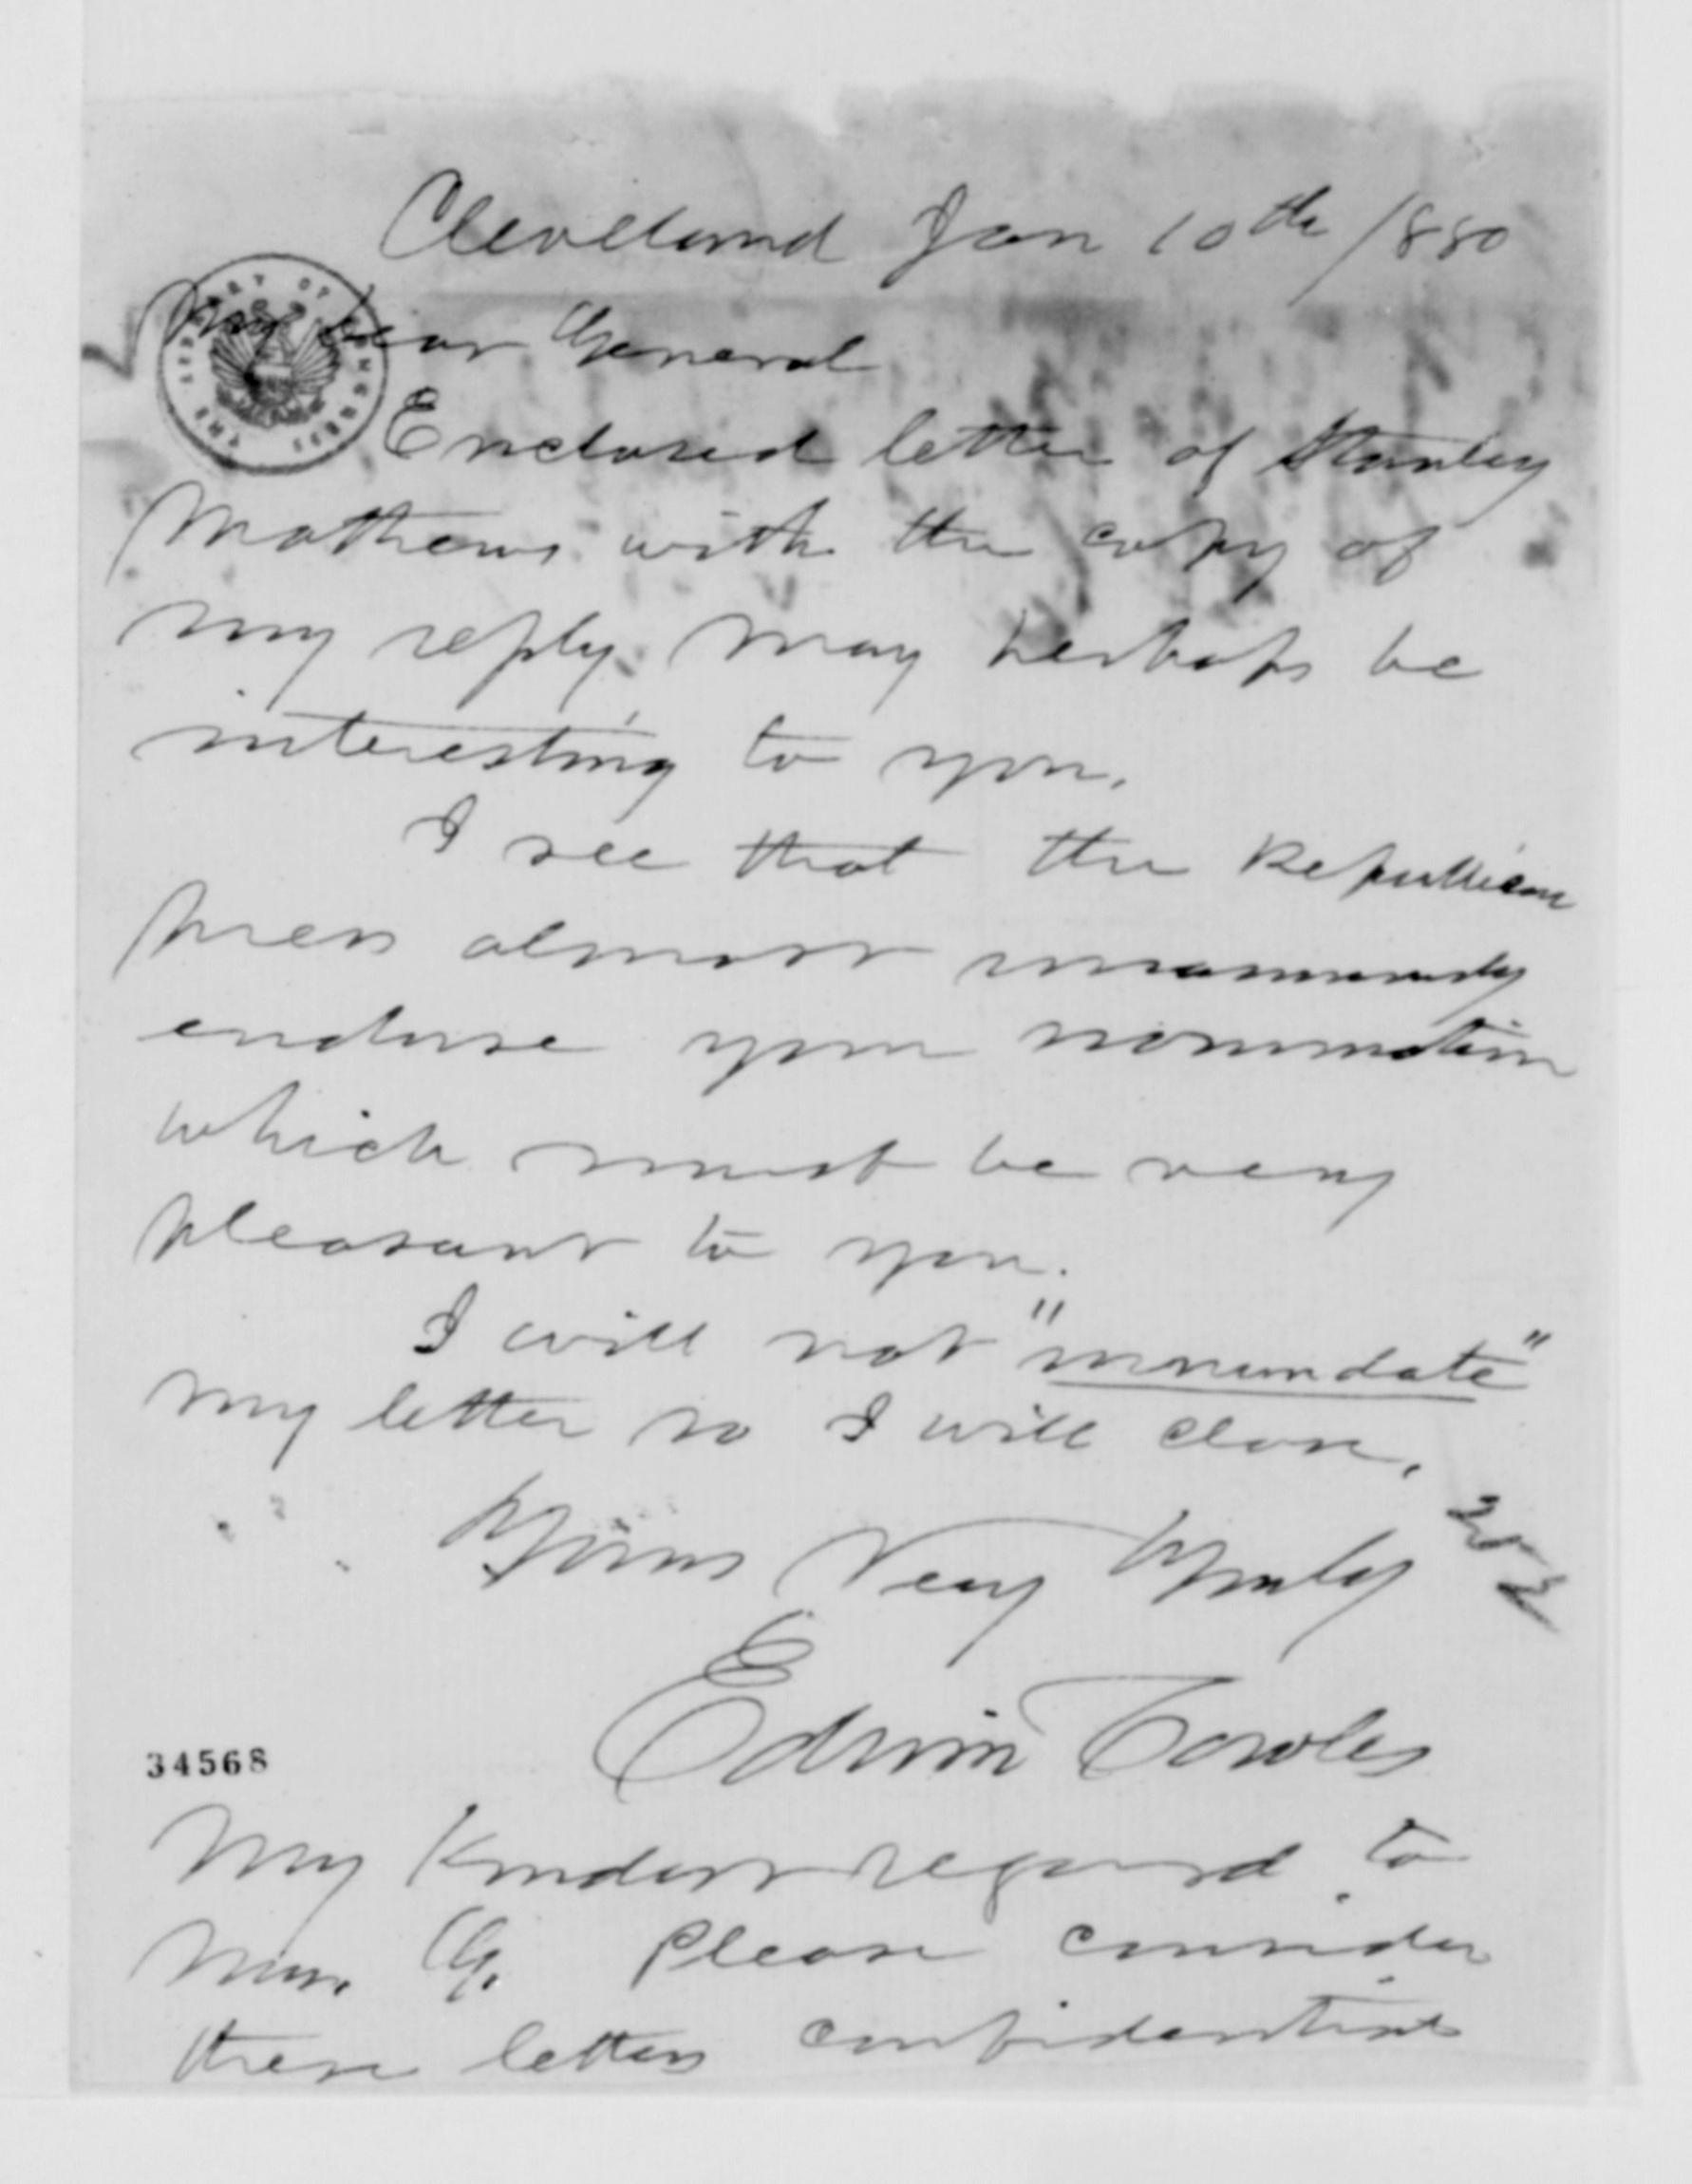 Cleveland Jan 10th 1880
My Dear General
Enclosed letter of Stanley
Mathews with the copy of
my reply may perhaps be
interesting to you.
I see that the Republican
press almost unanimously
endorse your nomination
which must be very
pleasant to you.
I will not "innundate"
my letter so I will close.
Yours Very Truly
Edwin Cowles
34568
My Kindest regard to
Mrs. G. Please consider
these letters confidential
THE LIBRARY OF CONGRESS